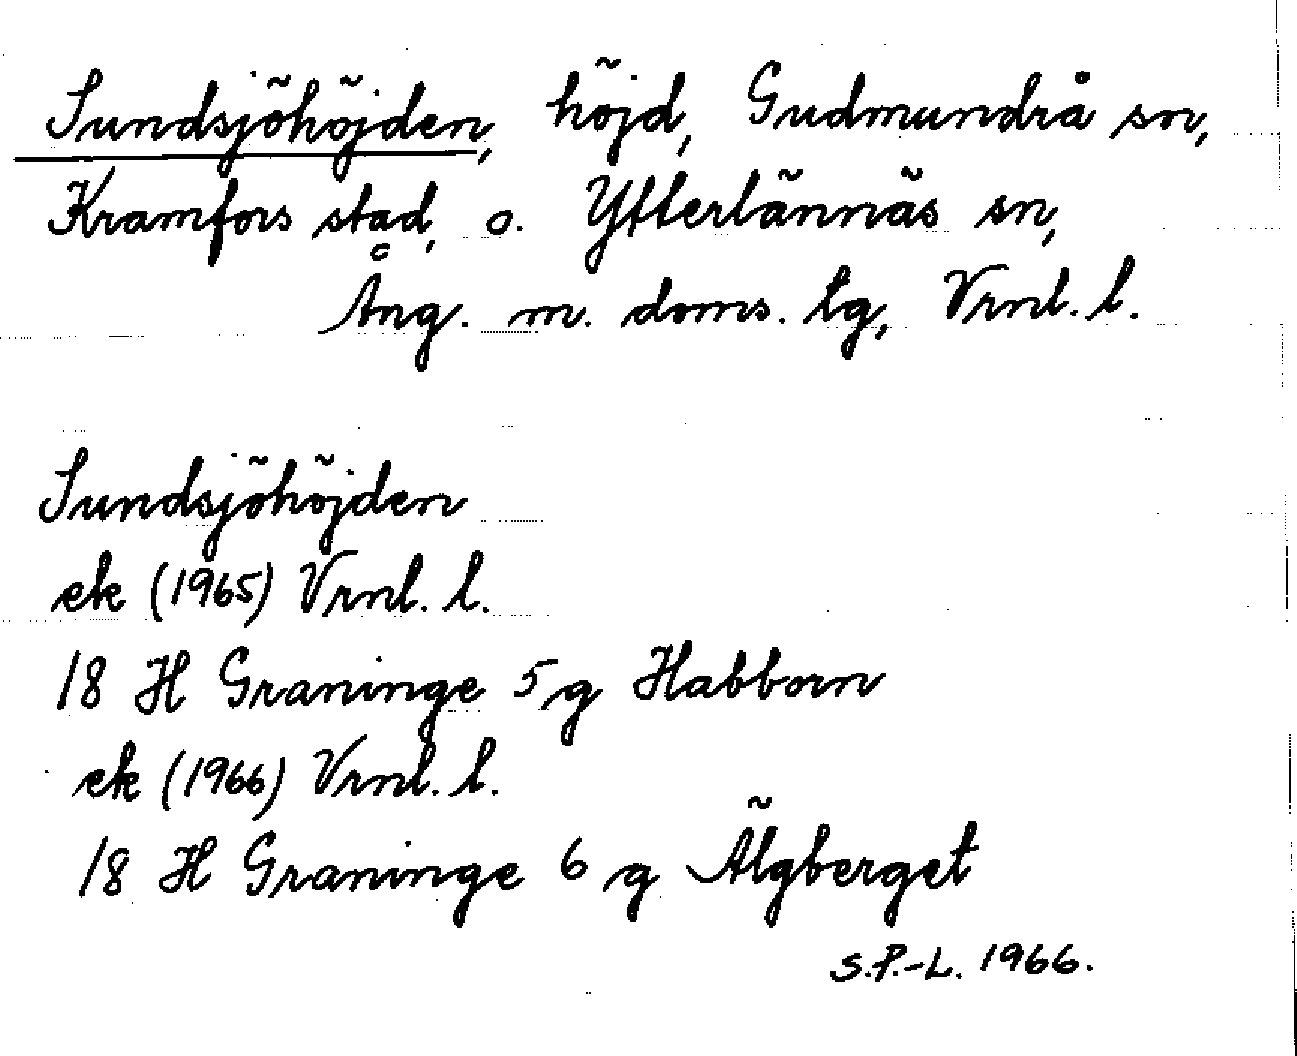 Sundsjöhöjden, höjd, Gudmundrå sn,
Kramfors stad, o. Ytterlännäs sn,
Ång. m. doms. tg, Vrnl. l.
Sundsjöhöjden
ek (1965) Vrnl. l.
18 H Graninge 5 g Habborn
ek (1966) Vrnl. l.
18 H Graninge 6 g Älgberget
S.P.-L. 1966.